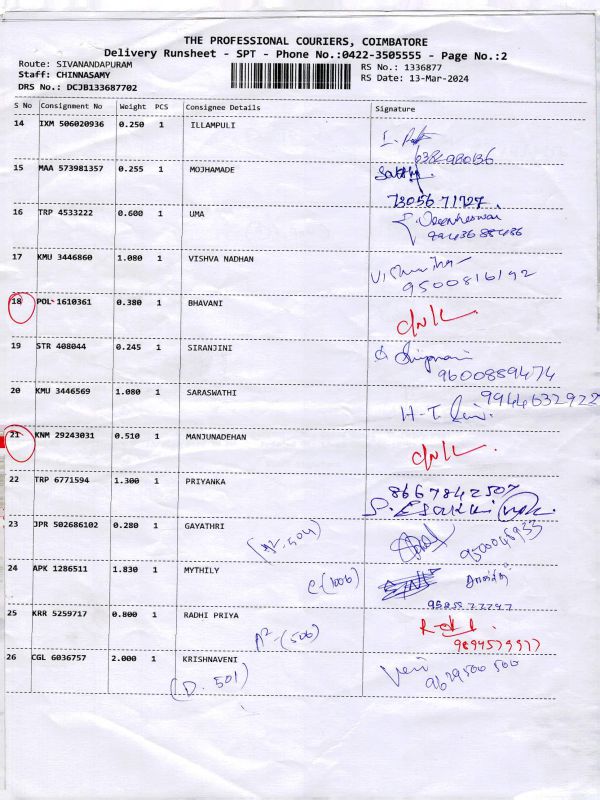 THE PROFESSIONAL COURIERS, COIMBATORE
Delivery Runsheet - SPT - Phone No.:0422-3505555 - Page No.:2
Route: SIVANANDAPURAM
Staff: CHINNASAMY
DRS No.: DCJB133687702
RS No.: 1336877
RS Date: 13-Mar-2024
S No Consignment No Weight PCS Consignee Details Signature
14 IXM 506020936 0.250 1 ILLAMPULI
15 MAA 573981357 0.255 1 MOJHAMADE
73056 71727
16 TRP 4533222 0.600 1 UMA
9943688486
17 KMU 3446860 1.080 1 VISHVA NADHAN
9500816192
18 POL 1610361 0.380 1 BHAVANI
D/L
19 STR 408044 0.245 1 SIRANJINI
9600889474
20 KMU 3446569 1.080 1 SARASWATHI
9944632922
21 KNM 29243031 0.510 1 MANJUNADEHAN
D/L
22 TRP 6771594 1.300 1 PRIYANKA
8667842507
23 JPR 502686102 0.280 1 GAYATHRI
(A2-504)
24 APK 1286511 1.830 1 MYTHILY
C-(1006)
25 KRR 5259717 0.800 1 RADHI PRIYA
A2-(506)
26 CGL 6036757 2.000 1 KRISHNAVENI
Veni
9629500500
(D. 501)